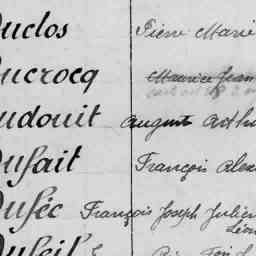 uclos Pierre Marie
ucrocq Maurice Jean
udouit august arthu
ufait François Alex
uféc François Joseph Julien
Léon